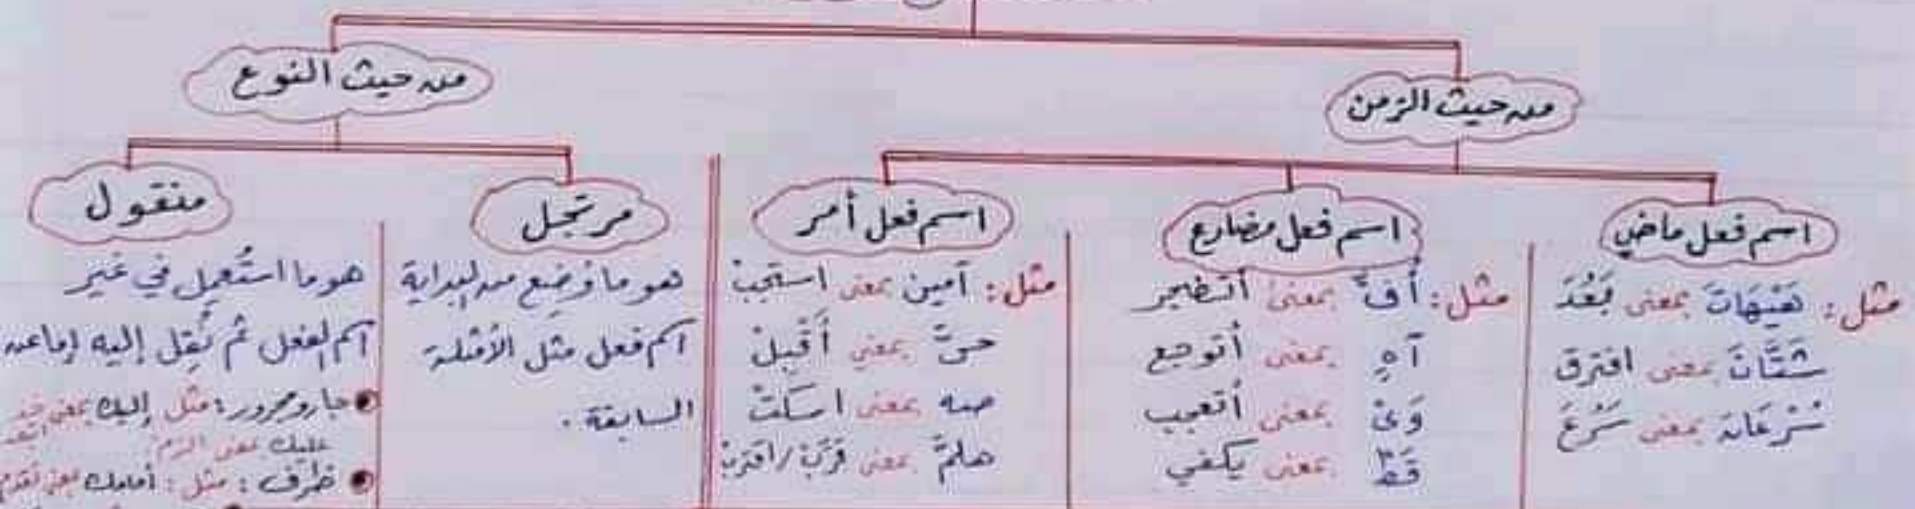 من حيث الزمن
من حيث النوع
اسم فعل ماضي
مثل: هَيْهَاتَ بمعنى بَعُدَ
شَتَّانَ بمعنى افترق
سُرْعَانَ بمعنى سَرُعَ
اسم فعل مضارع
مثل: أُفٍّ بمعنى أتضجر
آهِ بمعنى أتوجع
وَيْ بمعنى أتعجب
قَطْ بمعنى يكفي
اسم فعل أمر
مثل: آمين بمعنى استجبْ
حيَّ بمعنى أَقْبِلْ
صه بمعنى اسكتْ
هلمَّ بمعنى قرّبْ / اقتربْ
مرتجل
هو ما وُضِع من البداية
اسم فعل مثل الأمثلة
السابقة.
منقول
هو ما استُعمِل في غير
اسم الفعل ثم نُقِل إليه إما عن
جار ومجرور: مثل إليك بمعنى خذ
عليك بمعنى الزم
ظرف: مثل: أمامك بمعنى تقدم